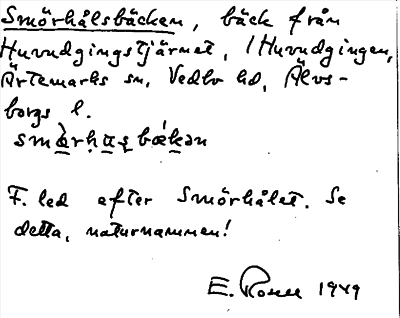 Smörhålsbäcken, bäck från
Huvudgingstjärnet, i Huvudgingen,
Ärtemarks sn, Vedbo hd, Älvs-
borgs l.
smö̀rhas̥bǽkən
F. led efter Smörhålet. Se
detta, naturnamnen!
E. 1949